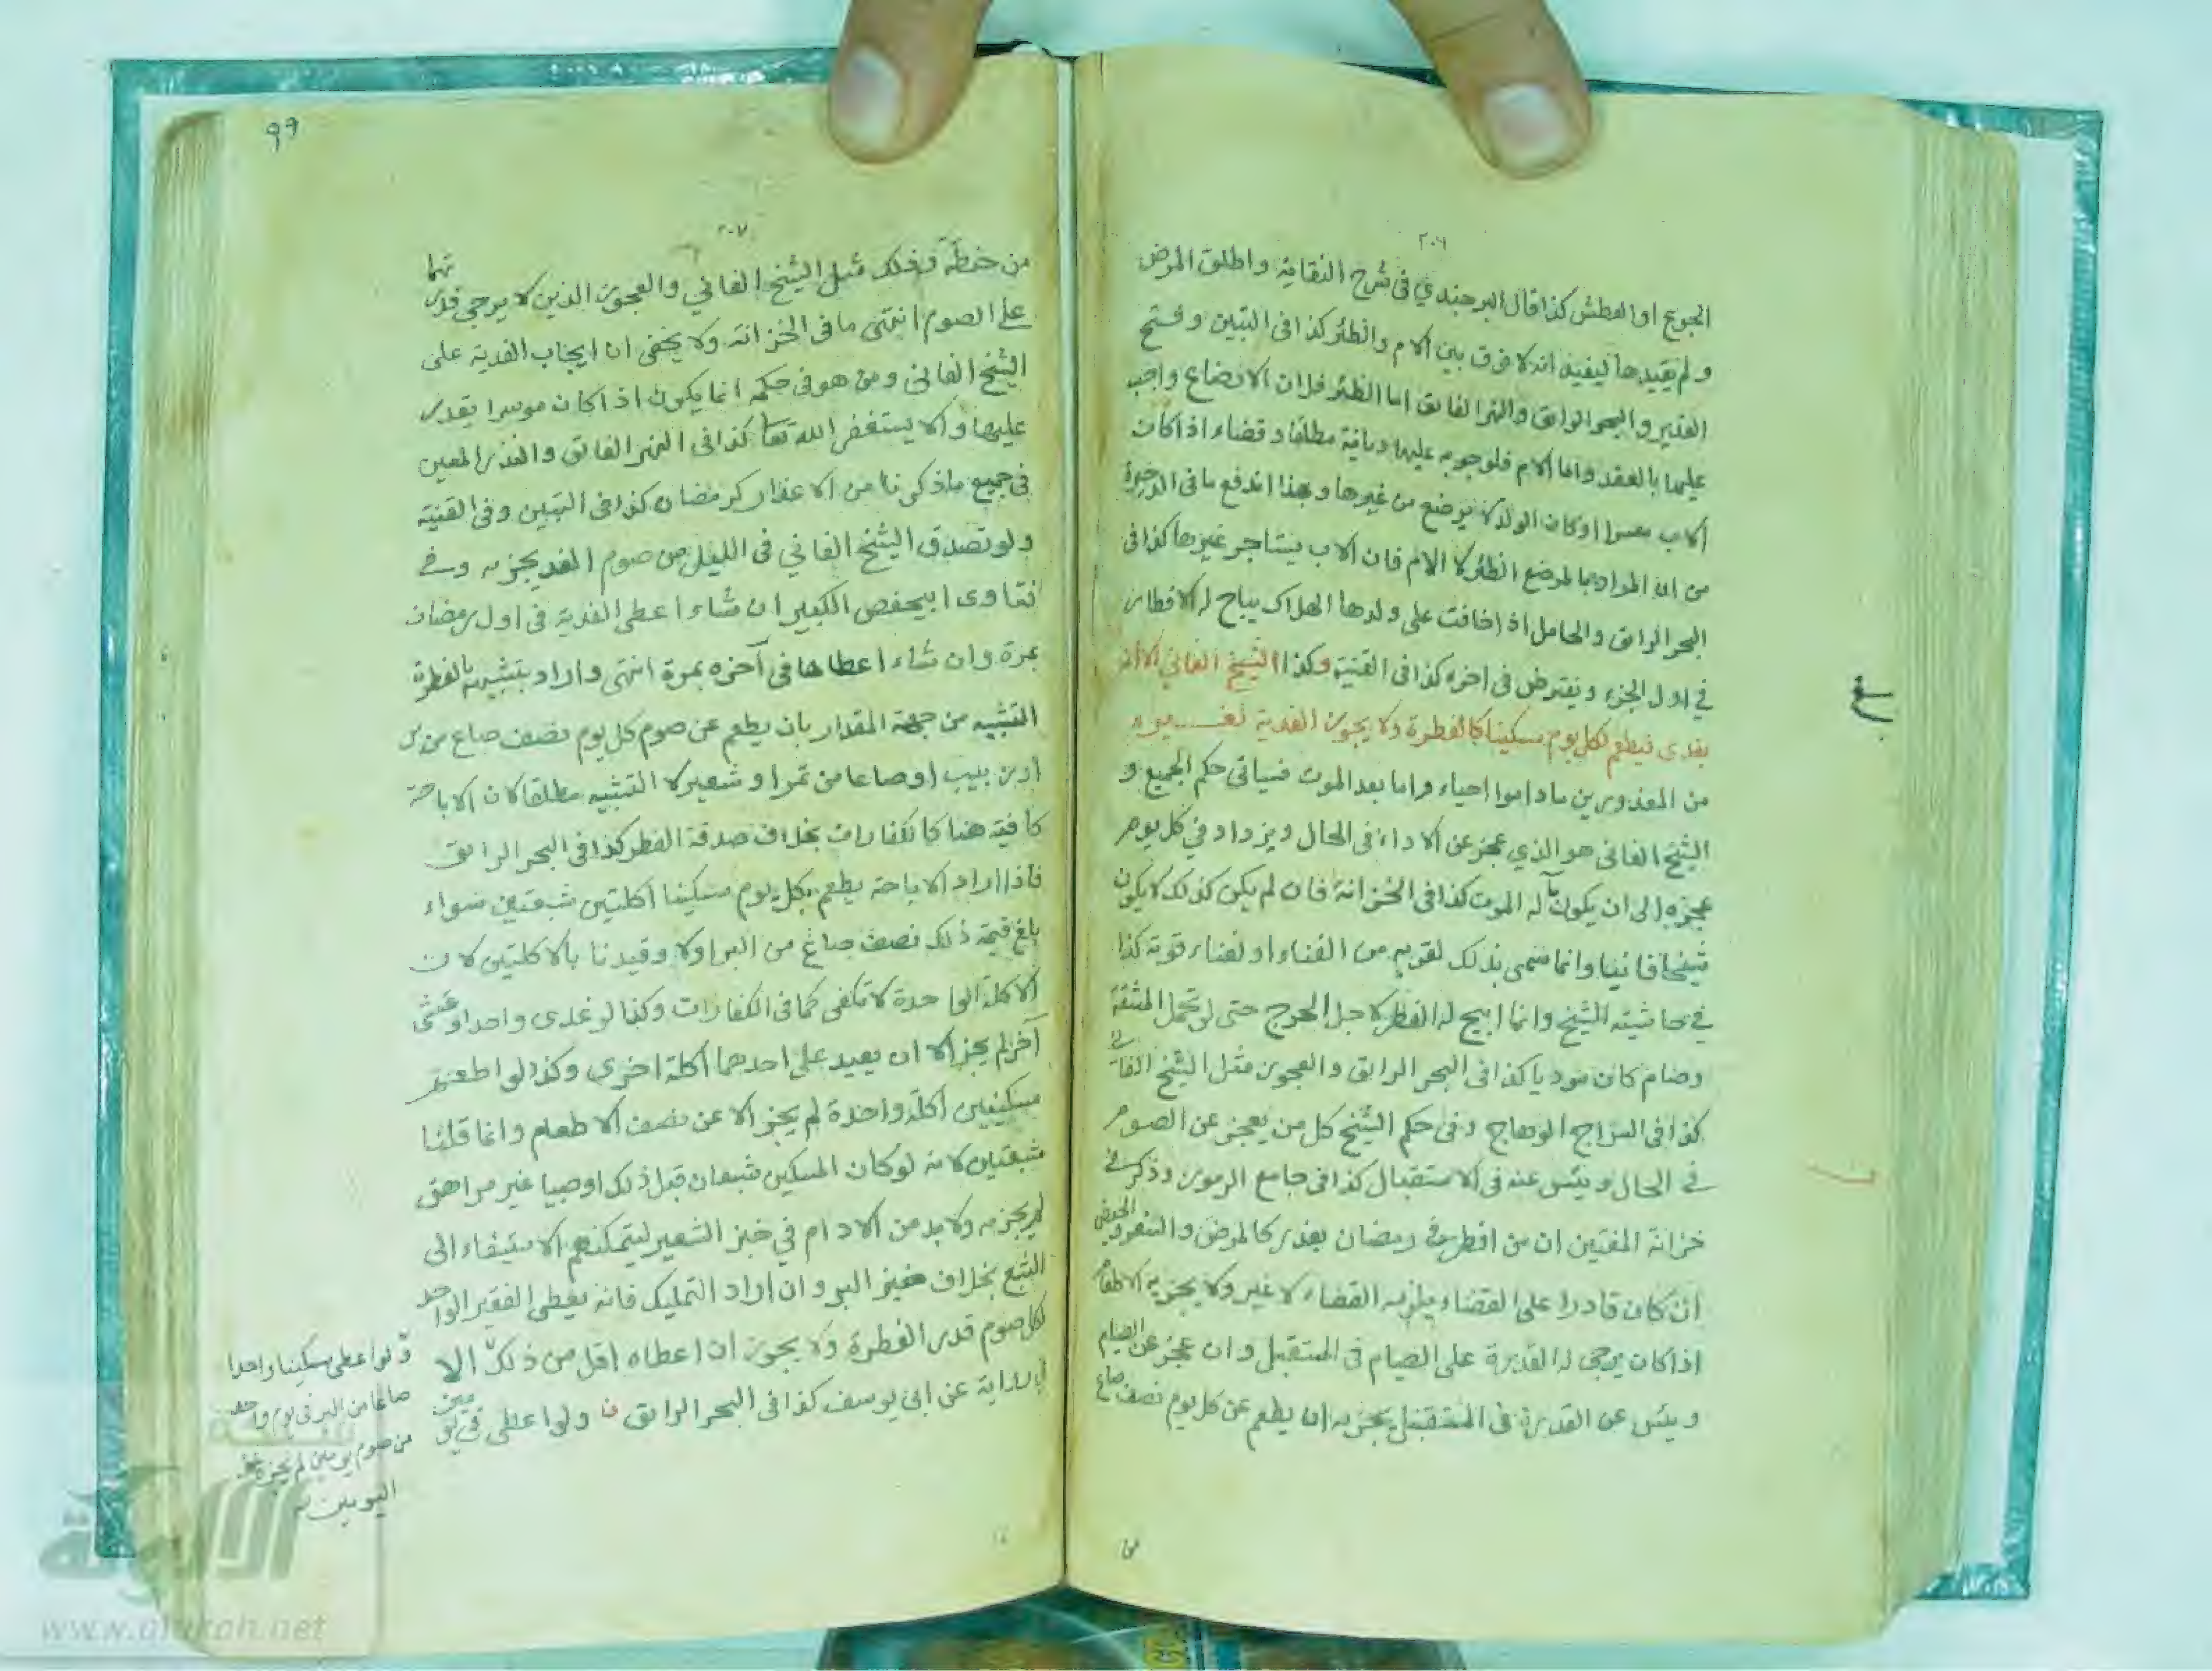 ٢٠٦
الجوع او العطش كذا قال البرجندي في شرح النقاية واطلق المرضع
ولم يقيدها ليفيد انه لا فرق بين الام والظئر كذا في التبيين وفتح
القدير والبحر الرائق والنهر الفائق اما الظئر فلان الارضاع واجب
عليها بالعقد واما الام فلوجوبه عليها ديانة مطلقا وقضاء اذا كان
الاب معسرا او كان الولد لا يرضع من غيرها وبهذا اندفع ما في الذخيرة
من ان المراد بالمرضع الظئر لا الام فان الاب يستاجر غيرها كذا في
البحر الرائق والحامل اذا خافت على ولدها الهلاك يباح لها الافطار
في اول الجزء ويفترض في اخره كذا في القنية وكذا الشيخ الفاني الا انه
يفدى فيطعم لكل يوم مسكينا كالفطرة ولا يجوز الفدية لغيره
من المعذورين ما داموا احياء واما بعد الموت فسياتي حكم الجميع و
الشيخ الفاني هو الذي عجز عن الاداء في الحال ويزداد في كل يوم
عجزه الى ان يكون مآله الموت كذا في الخزانة فان لم يكن كذلك لا يكون
شيخا فانيا وانما سمى بذلك لقربه من الفناء او لفناء قوته كذا
في حاشية الشيخ وانما ابيح له الفطر لاجل الحرج حتى لو تحمل المشقة
وصام كان موديا كذا في البحر الرائق والعجوز مثل الشيخ الفاني
كذا في السراج الوهاج وفي حكم الشيخ كل من يعجز عن الصوم
في الحال ويئس عنه في الاستقبال كذا في جامع الرموز وذكر في
خزانة المفتين ان من افطر في رمضان بعذر كالمرض والسفر والحيض
ان كان قادرا على القضاء يلزمه القضاء لا غير ولا يجزيه الاطعام
اذا كان يرجى له القدرة على الصيام في المستقبل وان عجز عن الصيام
ويئس عن القدرة في المستقبل يجزيه ان يطعم عن كل يوم نصف صاع
من
٩٩
٢٠٧
من حنطة وذلك مثل الشيخ الفاني والعجوز الذين لا يرجى قدرتهما
على الصوم انتهى ما في الخزانة ولا يخفى ان ايجاب الفدية على
الشيخ الفاني ومن هو في حكمه انما يكون اذا كان موسرا يقدر
عليها والا يستغفر الله تعا كذا في النهر الفائق والنذر المعين
في جميع ما ذكرنا من الاعذار كرمضان كذا في التبيين وفي القنية
ولو تصدق الشيخ الفاني في الليل من صوم الغد يجزيه وفي
فتاوى ابيحفص الكبير ان شاء اعطى الفدية في اول رمضان
بمرة وان شاء اعطاها في آخره بمرة انتهى واراد بتشبيهه بالفطرة
التشبيه من جهة المقدار بان يطعم عن صوم كل يوم نصف صاع من بر
او زبيب او صاعا من تمر او شعير لا التشبيه مطلقا لان الاباحة
كافية هنا كالكفارات بخلاف صدقة الفطر كذا في البحر الرائق
فاذا اراد الاباحة يطعم بكل يوم مسكينا اكلتين شبعتين سواء
بلغ قيمة ذلك نصف صاع من البر اولا وقيدنا بالاكلتين لان
الاكلة الواحدة لا تكفى كما في الكفارات وكذا لو غدى واحدا وعشى
آخر لم يجز الا ان يعيد على احدهما اكلة اخرى وكذا لو اطعم
مسكينين اكلة واحدة لم يجز الا عن نصف الاطعام وانما قلنا
شبعتين لانه لو كان المسكين شبعان قبل ذلك او صبيا غير مراهق
لم يجزيه ولا بد من الادام في خبز الشعير ليتمكنهم الاستيفاء الى
الشبع بخلاف خبز البر وان اراد التمليك فانه يعطى الفقير الواحد
لكل صوم قدر الفطرة ولا يجوز ان اعطاه اقل من ذلك الا
في رواية عن ابى يوسف كذا في البحر الرائق ولو اعطى
ولو اعطى مسكينا واحدا
صاعا من البر في يوم واحد
من صوم يومين لم يجزه عن
اليومين
الألوكة
www.alukah.net